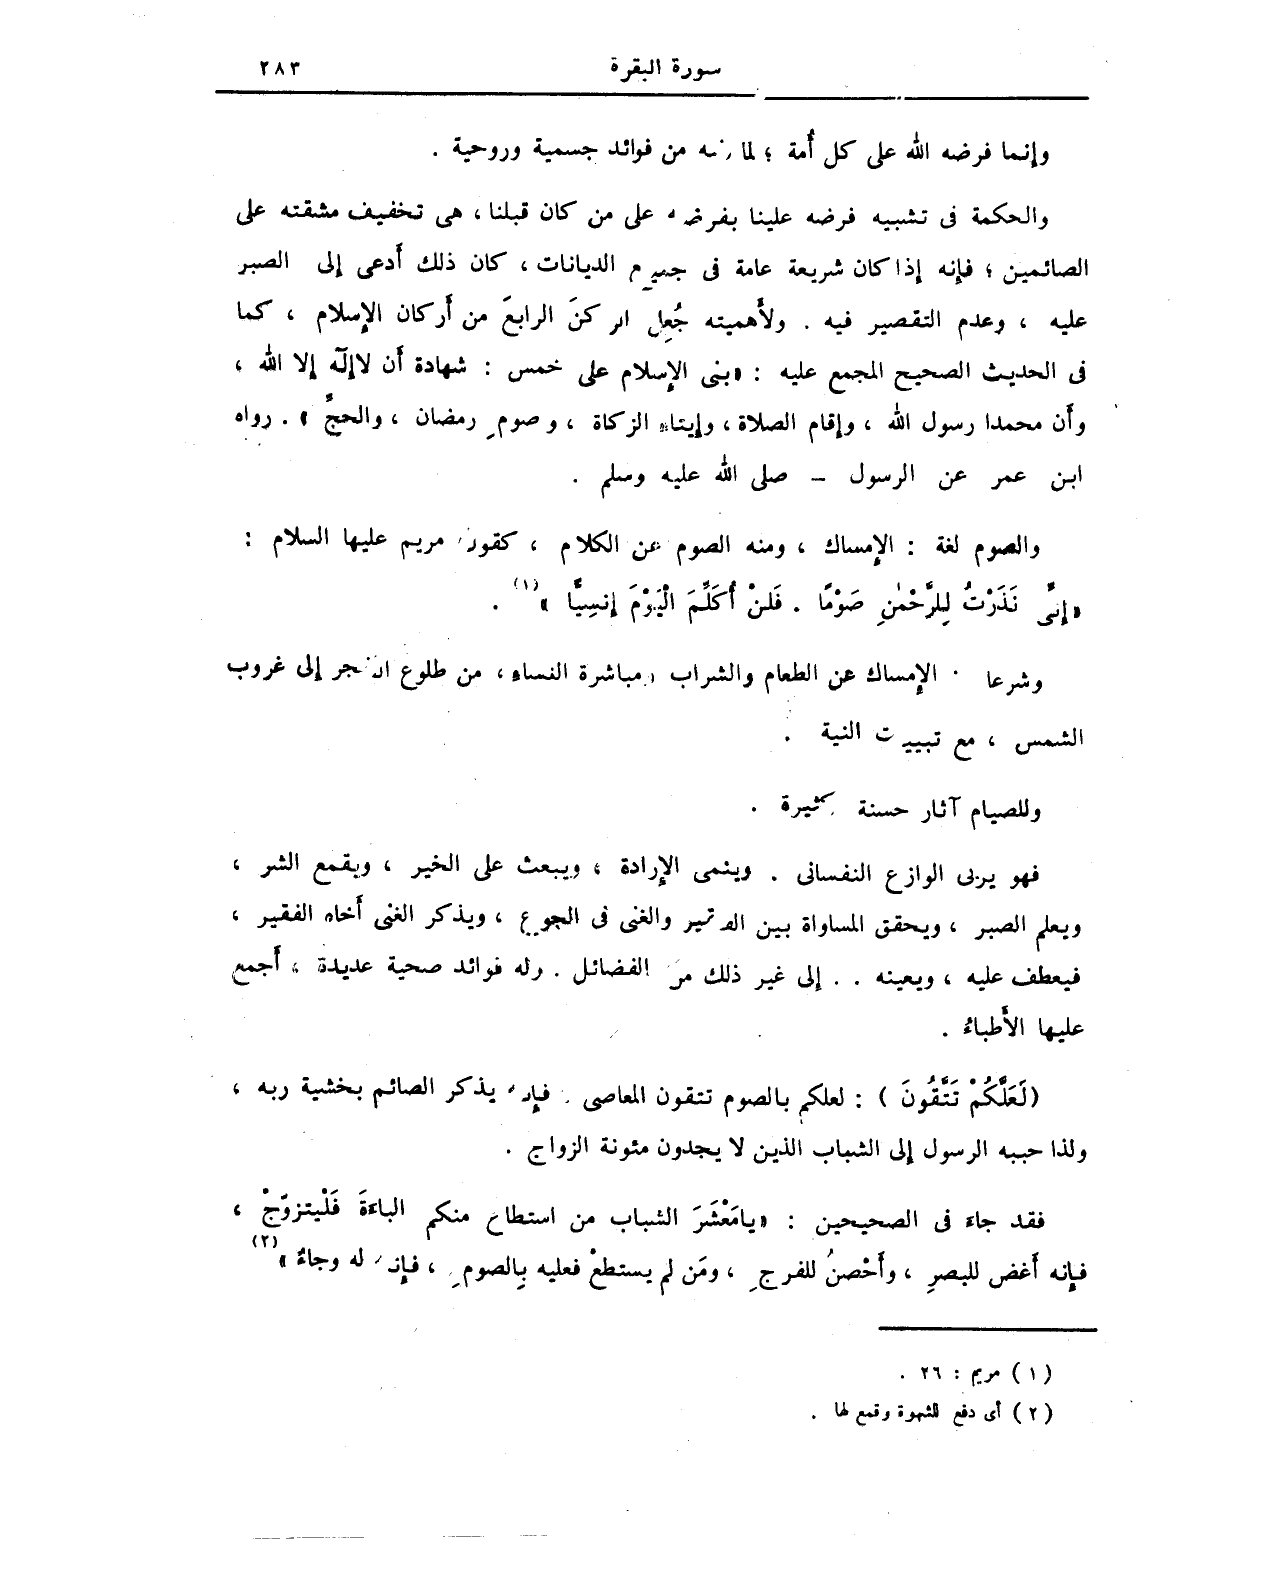 سورة البقرة ٢٨٣
وإنما فرضه الله على كل أُمة ؛ لما فيه من فوائد جسمية وروحية .
والحكمة فى تشبيه فرضه علينا بفرضه على من كان قبلنا ، هى تخفيف مشقته على
الصائمين ؛ فإنه إذا كان شريعة عامة فى جميع الديانات ، كان ذلك أَدعى إلى الصبر
عليه ، وعدم التقصير فيه . ولأَهميته جُعِل الركنَ الرابعَ من أَركان الإسلام ، كما
فى الحديث الصحيح المجمع عليه : «بنى الإسلام على خمس : شهادة أَن لاإلَه إلا الله ،
وأَن محمدا رسول الله ، وإقام الصلاة ، وإيتاء الزكاة ، وصومِ رمضان ، والحجِّ » . رواه
ابن عمر عن الرسول – صلى الله عليه وسلم .
والصوم لغة : الإمساك ، ومنه الصوم عن الكلام ، كقول مريم عليها السلام :
«إِنِّى نَذَرْتُ لِلرَّحْمٰنِ صَوْمًا . فَلَنْ أُكَلِّمَ الْيَوْمَ إنسِيًّا »(١) .
وشرعا : الإمساك عن الطعام والشراب ومباشرة النساء ، من طلوع الفجر إلى غروب
الشمس ، مع تبييت النية .
وللصيام آثار حسنة كثيرة .
فهو يربى الوازع النفسانى . وينمى الإرادة ، ويبعث على الخير ، ويقمع الشر ،
ويعلم الصبر ، ويحقق المساواة بين الفقير والغنى فى الجوع ، ويذكر الغنى أَخاه الفقير ،
فيعطف عليه ، ويعينه . . إلى غير ذلك من الفضائل . وله فوائد صحية عديدة ، أَجمع
عليها الأَطباءُ .
(لَعَلَّكُمْ تَتَّقُونَ ) : لعلكم بالصوم تتقون المعاصى . فإنه يذكر الصائم بخشية ربه ،
ولذا حببه الرسول إلى الشباب الذين لا يجدون مئونة الزواج .
فقد جاءَ فى الصحيحين : «يامَعْشَرَ الشباب من استطاع منكم الباءَةَ فَلْيتزوّجْ ،
فإنه أَغض للبصرِ ، وأَحْصنُ للفرجِ ، ومَن لم يستطعْ فعليه بِالصومِ ، فإنه له وجاءٌ »(٢)
(١) مريم : ٢٦ .
(٢) أى دفع للشهوة وقمع لها .